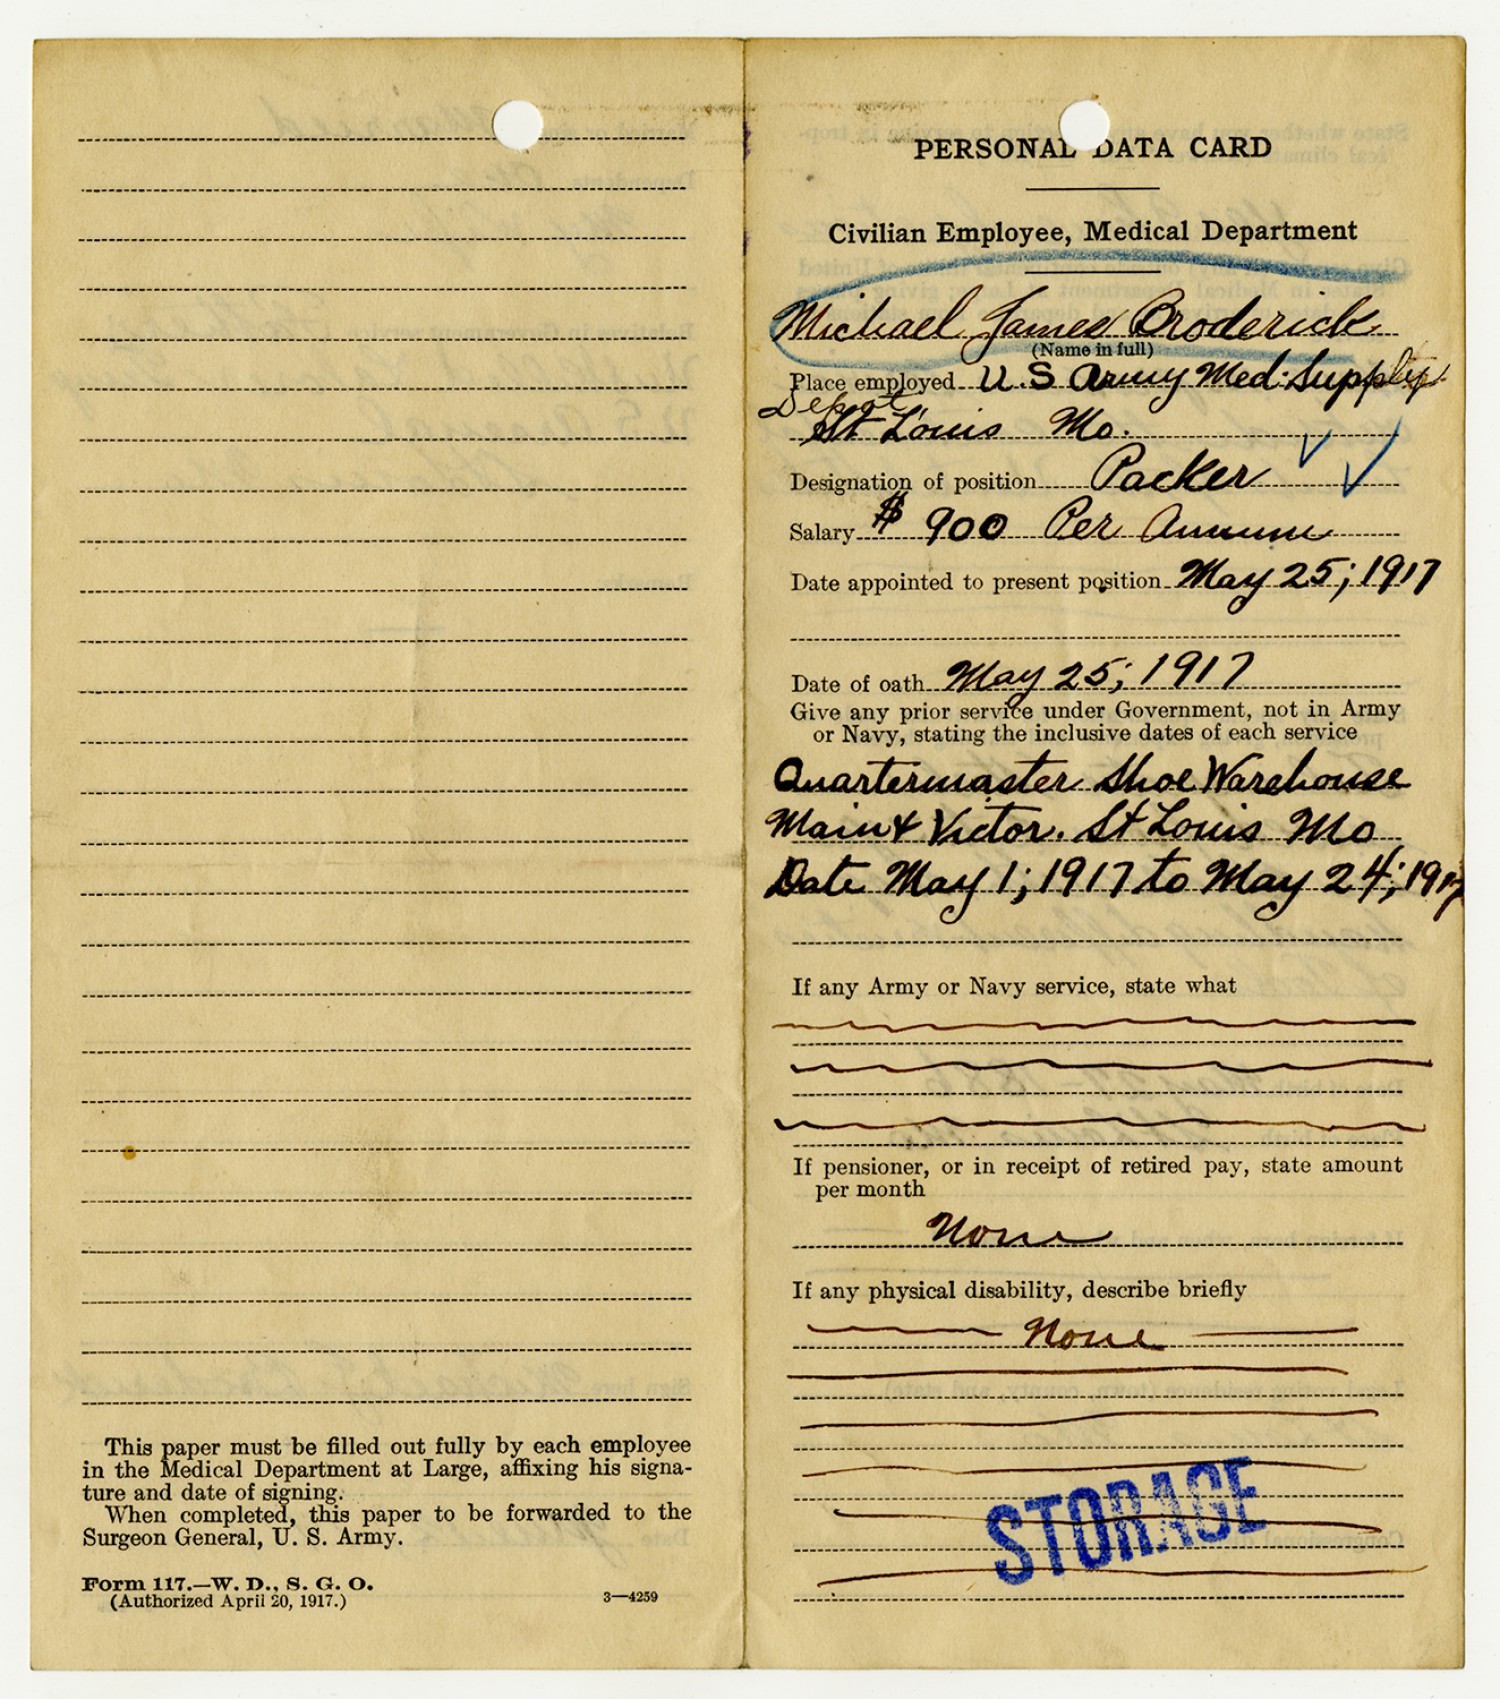 This paper must be filled out fully by each employee
in the Medical Department at Large, affixing his signa-
ture and date of signing.
When completed, this paper to be forwarded to the
Surgeon General, U. S. Army.
Form 117.—W. D., S. G. O.
(Authorized April 20, 1917.)
3—4259
PERSONAL DATA CARD
Civilian Employee, Medical Department
Michael James Broderick
(Name in full)
Place employed U.S Army Med. Supply
Depot
St Louis Mo.
Designation of position Packer
Salary $ 900 Per Annum
Date appointed to present position May 25; 1917
Date of oath May 25; 1917
Give any prior service under Government, not in Army
or Navy, stating the inclusive dates of each service
Quartermaster Shoe Warehouse
Main & Victor. St Louis Mo
Date May 1; 1917 to May 24; 1917
If any Army or Navy service, state what
If pensioner, or in receipt of retired pay, state amount
per month
None
If any physical disability, describe briefly
None
STORAGE